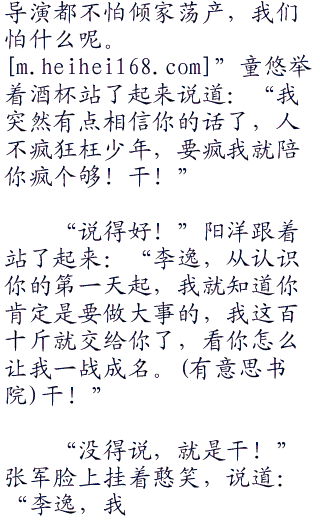 导演都不怕倾家荡产，我们
怕什么呢。
[m.heihei168.com]”童悠举
着酒杯站了起来说道：“我
突然有点相信你的话了，人
不疯狂枉少年，要疯我就陪
你疯个够！干！”
“说得好！”阳洋跟着
站了起来：“李逸，从认识
你的第一天起，我就知道你
肯定是要做大事的，我这百
十斤就交给你了，看你怎么
让我一战成名。(有意思书
院)干！”
“没得说，就是干！”
张军脸上挂着憨笑，说道：
“李逸，我